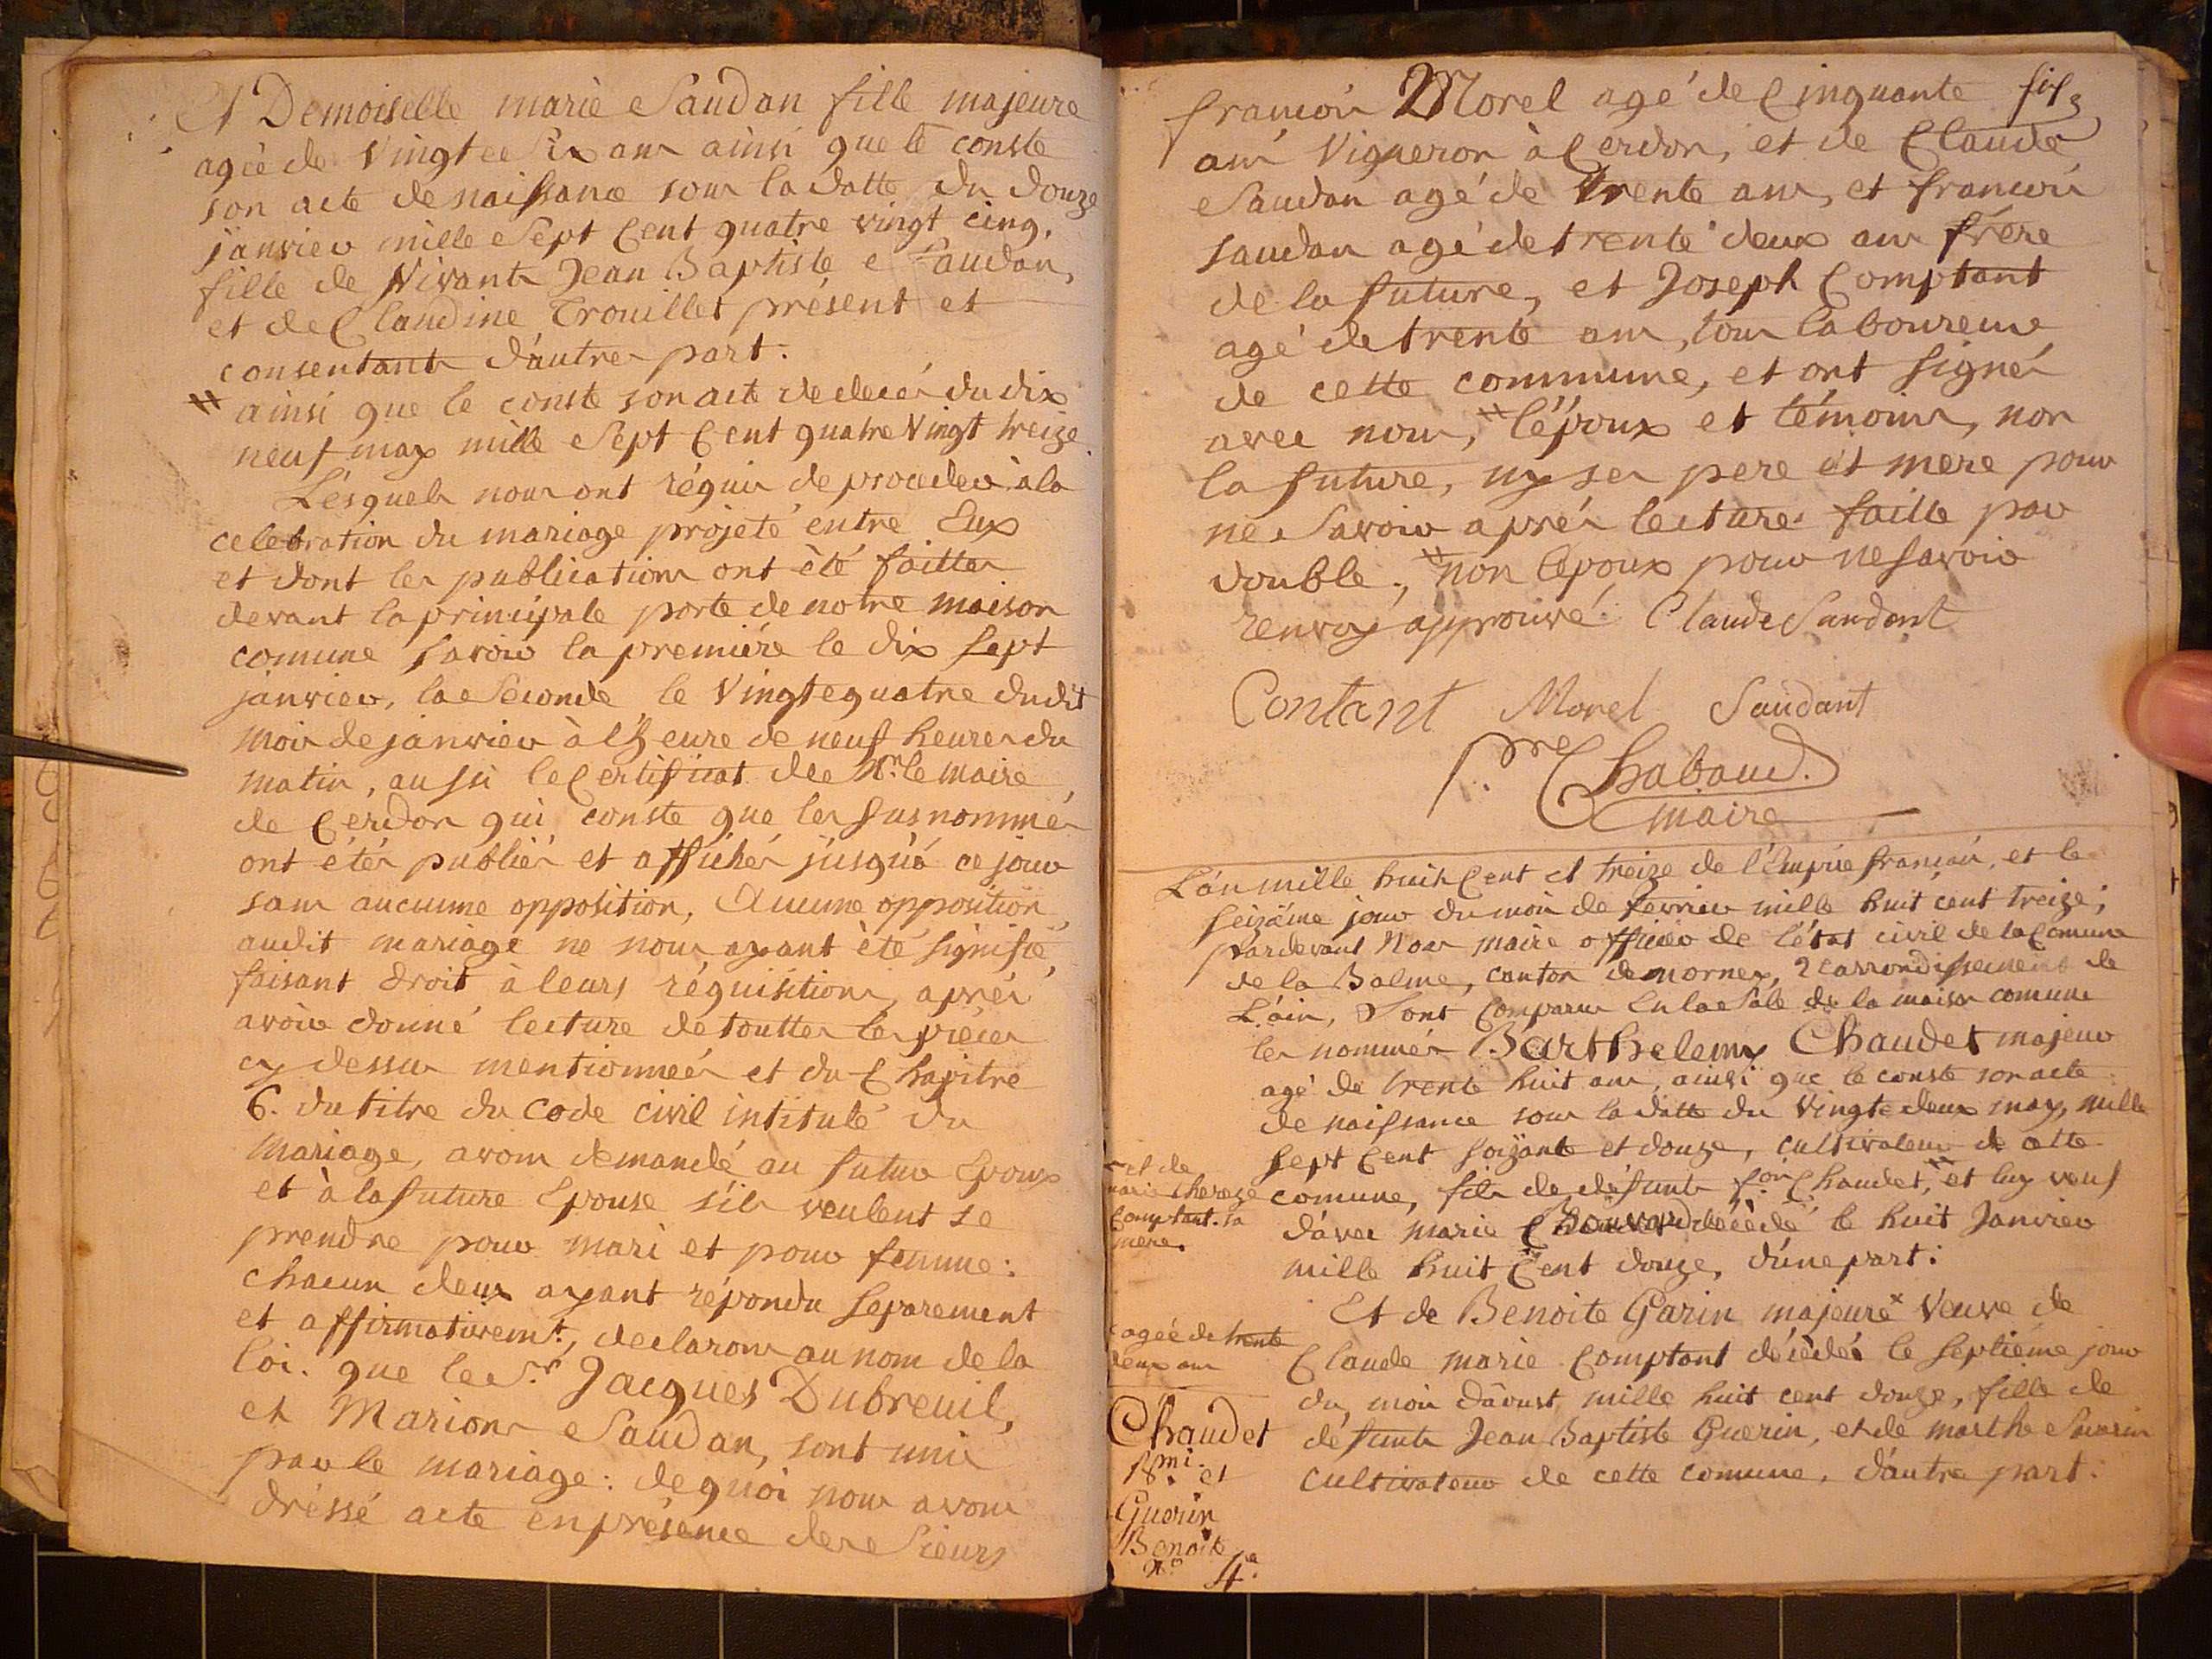 Et Demoiselle marie Saudan fille majeure
agée de Vingt e Six ans ainsi que le conste
son acte de naissance sous la datte du douze
janvier mille Sept Cent quatre vingt cinq,
fille de Vivants Jean Baptiste Saudan,
et de Claudine Trouillet présent et
consentants d'autres part.
# ainsi que le conste son acte de decés du dix
neuf may mille Sept Cent quatre Vingt treize
Lésquels nous ont réquis de proceder à la
celebration du mariage projeté entre Eux
et dont les publications ont été faittes
devant la principale porte de notre maison
comune savoir la premiére le dix sept
janvier, la Seconde le Vingt e quatre dudit
mois de janvier à l'heure de neuf heures du
matin, aussi le Certificat de Mr. le maire
de Cerdon qui conste que les susnommés
ont étés publiés et affichés jusqu'à ce jour
sans aucunne opposition, Aucune opposition
audit mariage ne nous ayant été signifié,
faisant droit à leurs réquisitions, aprés
avoir donné lecture de touttes les piéces
cy dessus mentionneés et du Chapitre
6. du titre du Code civil intitulé du
Mariage, avons demandé au futur Epoux
et à la future Epouse s'ils veulent se
prendre pour mari et pour femme:
chacun deux ayant répondu separement
et affirmativemt., declarons au nom de la
loi. que le Sr. Jacques Dubreuil,
et Marions Saudan, sont unis
par le mariage: de quoi nous avons
dréssé acte en présence des Sieurs
francois Morel agé de Cinquante six
ans Vigneron à Cerdon, et de Claude
Saudan agé de trente ans, et francois
saudan agé de trente deux ans frére
de la future, et Joseph Comptant
agé de trente ans, tous laboureurs
de cette commune, et ont signés
avec nous, # l'époux et témoins, non
la future, ny ses pere et mere pour
ne Savoir aprés lecture faitte par
double., # non lepoux pour ne savoir
renvoy approuvé. Claude Saudant
Contant Morel Saudant
Chabaud.
maire
L'an mille huit Cent et treize de l'Empire francais, et le
seiziéme jour du mois de fevrier mille huit cent treize;
pardevant Nous maire officier de l'état civil de la Comune
de la Balme, canton de mornex, arrondissement de
L'ain, Sont Comparus En la Sale de la maison comune
les nommés Barthelemy Chaudet majeur
agé de trente huit ans, ainsi que le conste son acte
de naissance sous la datte du Vingt e deux may, mille
sept Cent soixante et douze, cultivateur de cette
comune, fils de défunts fois Chaudet, # et luy veuf
d'avec marie décédé le huit Janvier
mille huit Cent douze, d'une part.
et de
marie thereze
Comptant. sa
mére.
Et de Benoite Garin majeure x Veuve de
Claude marie Comptant décédés le septiéme jour
du mois d'avoust mille huit cent douze, fille de
défunts Jean Baptiste Guerin, et de marthe Savarin
cultivateur de cette comune, d'autre part.
agée de trente
deux ans
Chaudet
Bmi. et
Guerin
Benoite
No. 4e.